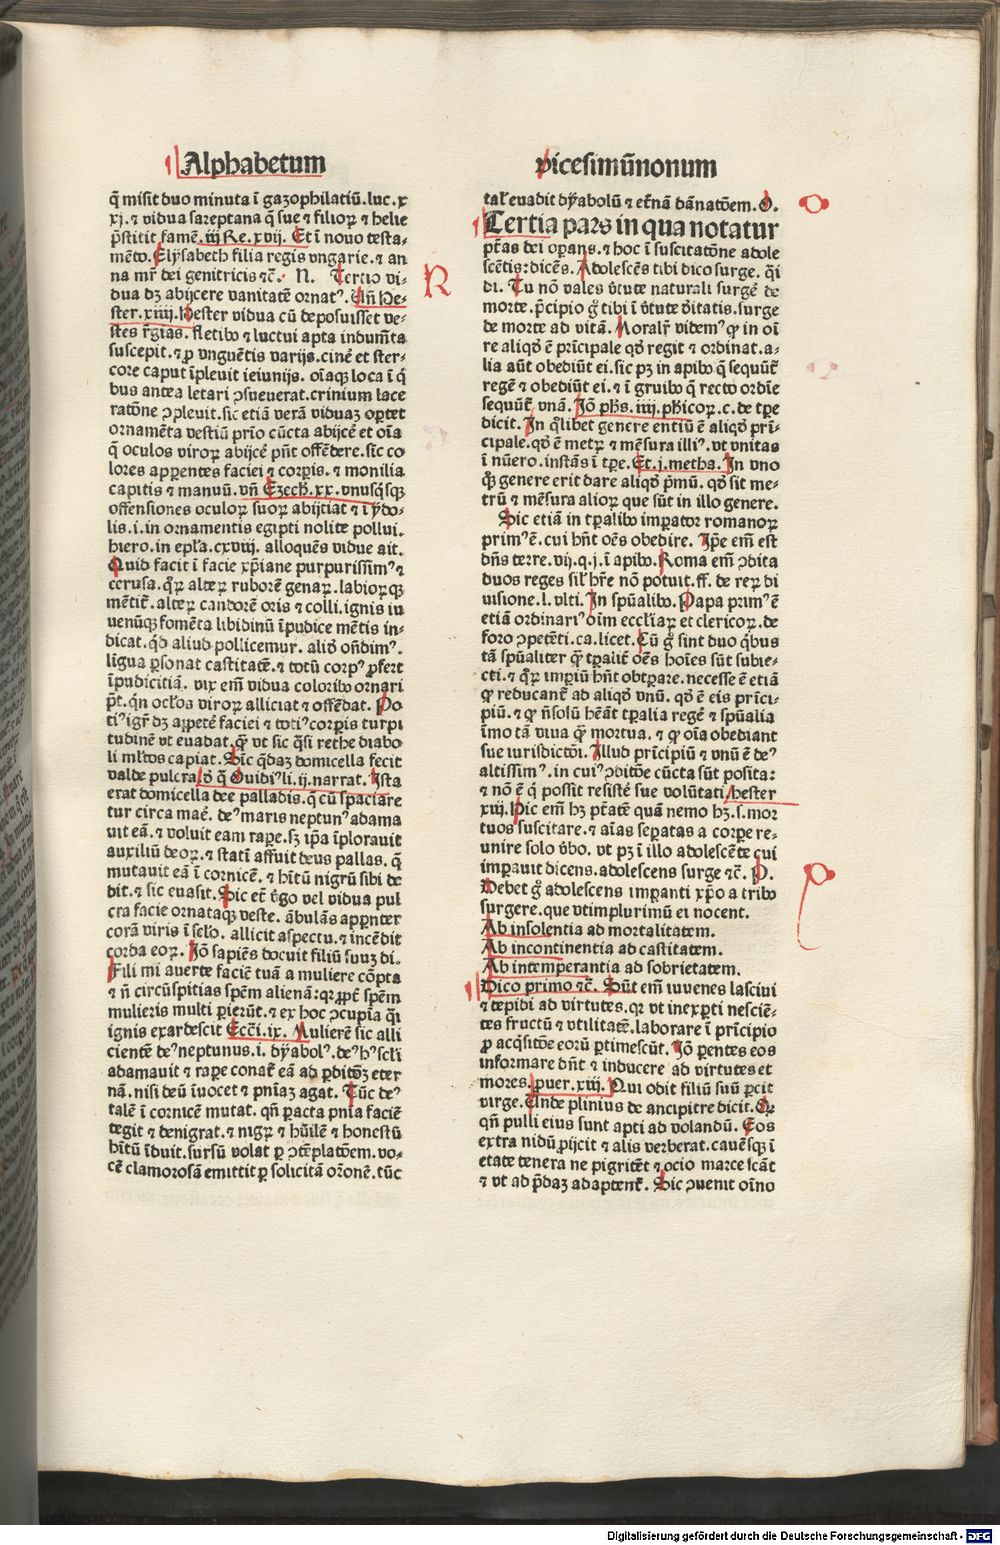 Alphabetum
vicesimũnonum
q̄ misit duo minuta ī gazophilatiũ. luc. x
xj. ⁊ vidua sareptana q̄ sue ⁊ filioꝝ ⁊ helie
p̄stitit famē. iij Re. xvij. Et ī nouo testa-
mẽto. Elysabeth filia regis vngarie. ⁊ an
na mr̄ dei genitricis ⁊c̄. N. Tertio vi-
dua dꝫ abijcere vanitatē ornatꝰ. Uñ He-
ster. xiiij. Hester vidua cũ deposuisset ve-
stes r̄gias. fletibꝰ ⁊ luctui apta indumẽta
suscepit. ⁊ ꝓ vnguẽtis varijs. cinē et ster-
core caput īpleuit ieiunijs. oīaqꝫ loca ī q̄
bus antea letari ↄsueuerat. crinium lace
ratōne ↄpleuit. sic etiã verã viduaꝫ oportet
ornamẽta vestiũ prīo cũcta abijcē et oīa
q̄ oculos viroꝝ abijcē pñt offẽdere. sic co
lores apparentes faciei ⁊ corpis. ⁊ monilia
capitis ⁊ manuũ. vñ Ezech. xx. vnusq̄sqꝫ
offensiones oculoꝝ suoꝝ abijtiat ⁊ ī ydo-
lis. i. in ornamentis egipti nolite pollui.
hiero. in epła. cxviij. alloquẽs vidue ait.
Quid facit ī facie xp̄iane purpurissimꝰ ⁊
cerusa. q̄ꝝ alteꝝ ruborē genaꝝ. labioꝝqꝫ
mẽtit̃. alteꝝ candorē oris ⁊ colli. ignis iu
uenũqꝫ fomẽta libidinũ īpudice mẽtis in-
dicat. qd aliud pollicemur. aliō oñdimꝰ.
līgua p̱sonat castitatē. ⁊ totũ corpꝰ ꝓfert
īpudicitiã. vix em̄ vidua coloribꝰ ornari
p̄t. qn ocłos viroꝝ alliciat ⁊ offẽdat. Po
tiꝰ igr̄ dꝫ appetē faciei ⁊ totiꝰ corpis turpi
tudinē vt euadat. q̄ꝫ vt sic q̄si rethe diabo
li młtos capiat. Sic q̄daꝫ domicella fecit
valde pulcra. ꝺ q̄ Ouidiꝰ li. ij. narrat. Ista
erat domicella dee palladis. q̄ cũ spaciare
tur circa maē. deꝰ maris neptunꝰ adama
uit eã. ⁊ voluit eam rape. sꝫ ipa īplorauit
auxiliũ deoꝝ. ⁊ statī affuit deus pallas. q̄
mutauit eã ī cornicē. ⁊ hītũ nigrũ sibi de
dit. ⁊ sic euasit. Sic et̄ v̄go vel vidua pul
cra facie ornataqꝫ veste. ãbulãs appnter
corã viris ī secło. allicit aspectu. ⁊ incẽdit
corda eoꝝ. Iō sapiẽs docuit filiũ suuꝫ di.
Fili mi auerte faciē tuã a muliere cōpta
⁊ ñ circũspitias spẽm alienã: qꝛ ꝓpt̄ spẽm
mulieris multi pierũt. ⁊ ex hoc ↄcupīa q̄i
ignis exardescit Ecci. ix. Mulierē sic alli
cientē deꝰ neptunus. i. dyabolꝰ. deꝰ hꝰ secli
adamauit ⁊ rape conat̃ eã ad pditōꝫ eter
nã. nisi deũ īuocet ⁊ pniaꝫ agat. Tũc deꝰ
talē ī cornicē mutat. qñ pacta pnia faciē
tegit ⁊ denigrat. ⁊ nigꝝ ⁊ hũilē ⁊ honestũ
hītũ īduit. sursũ volat ꝑ ↄtẽplatōem. vo-
cē clamorosã emittit ꝑ solicitã orōnē. tũc
R
tal' euadit dyabolũ ⁊ et̄nã dãnatōem. O.
Tertia pars in qua notatur
ptãs dei opans. ⁊ hoc ī suscitatōne adole
scẽtis: dicẽs. Adolescẽs tibi dico surge. q̄i
di. Tu nō vales v̄tute naturali surgē de
morte. p̄cipio g̊ tibi ī v̄tute v̄itatis. surge
de morte ad vitã. Moralr̄ videmꝰ ꝙ in oī
re aliqd ē prīcipale qd regit ⁊ ordinat. a-
lia aũt obediũt ei. sic pꝫ in apibꝰ q̄ sequũt̃
regē ⁊ obediũt ei. ⁊ ī gruibꝰ q̄ recto ordīe
sequũt̃ vnã. Iō phs. iiij. phicoꝝ. c. de tpe
dicit. In q̄libet genere entiũ ē aliqd prī-
cipale. qd ē metꝝ ⁊ mẽsura illiꝰ. vt vnitas
ī nũero. instãs ī tpe. Et. j. metha. In vno
qꝫ genere erit dare aliqd pmũ. qd sit me-
trũ ⁊ mẽsura alioꝝ que sũt in illo genere.
Sic etiã in tpalibꝰ imperator romanoꝝ
primꝰ ē. cui hñt oēs obedire. Ipe em̄ est
dñs terre. vij. q. j. ī apibꝰ. Roma em̄ ↄdita
duos reges sił hr̄e nō potuit. ff. de reꝝ di
uisione. l. vlti. In spũalibꝰ. Papa primꝰ ē
etiã ordinariꝰ oīm eccliaꝝ et clericoꝝ. de
foro ↄpetẽti. ca. licet. Cũ g̊ sint duo q̄bus
tã spũaliter q̄ꝫ tpalit̃ oēs hoīes sũt subie-
cti. ⁊ q̄ꝝ impiũ hñt obtpare. necesse ē etiã
ꝙ reducant̃ ad aliqd vnũ. qd ē eis prīci-
piũ. ⁊ ꝙ ñsolũ hẽãt tpalia regē ⁊ spũalia
īmo tã viua q̄ꝫ mortua. ⁊ ꝙ oīa obediant
sue iurisdictōi. Illud prīcipiũ ⁊ vnũ ē deꝰ
altissimꝰ. in cuiꝰ ↄditōe cũcta sũt posita:
⁊ nō ē q̄ possit resistē sue volũtati. hester
xiij. Hic em̄ hꝫ ptãtē quã nemo hꝫ. s. mor
tuos suscitare. ⁊ aīas sepatas a corpe re-
unire solo v̄bo. vt pꝫ ī illo adolescẽte cui
impauit dicens. adolescens surge ⁊c̄. P.
Debet g̊ adolescens impanti xp̄o a tribꝰ
surgere. que vtimplurimũ ei nocent.
Ab insolentia ad mortalitatem.
Ab incontinentia ad castitatem.
Ab intemperantia ad sobrietatem.
Dico primo ⁊c̄. Sũt em̄ iuuenes lasciui
⁊ tepidi ad virtutes. qꝛ vt inexpti nesciẽ-
tes fructũ ⁊ vtilitatē. laborare ī prīcipio
ꝓ acq̄sitōe eorũ ptimescũt. Iō pentes eos
informare dñt ⁊ inducere ad virtutes et
mores. puer. xiij. Qui odit filiũ suũ pcit
virge. Unde plinius de ancipitre dicit. Qꝛ
qñ pulli eius sunt apti ad volandũ. Eos
extra nidũ ꝓijcit ⁊ alis verberat. cauẽsqꝫ ī
etate tenera ne pigritẽt ⁊ ocio marcescãt
⁊ vt ad pdaꝫ adaptent̃. Sic ↄuenit oīno
O
P
Digitalisierung gefördert durch die Deutsche Forschungsgemeinschaft - DFG